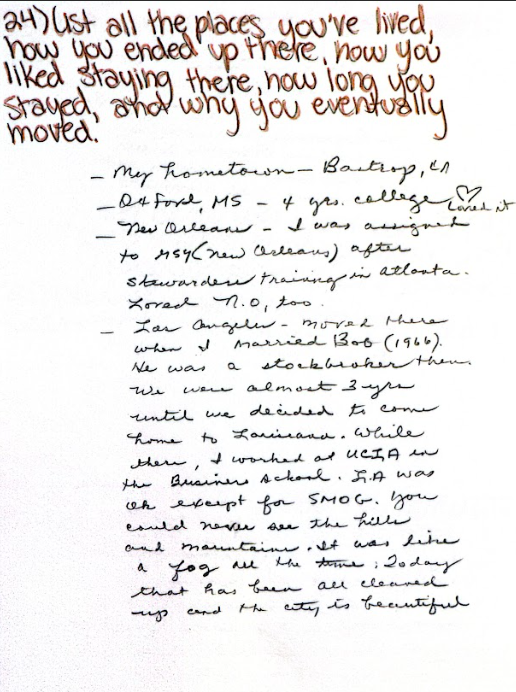 24) List all the places you've lived,
how you ended up there, how you
liked staying there, how long you
stayed, and why you eventually
moved.
– My hometown – Bastrop, LA
– Oxford, MS – 4 yrs. college ♡ Loved it
– New Orleans – I was assigned
to MSY (New Orleans) after
stewardess training in Atlanta.
Loved N.O., too.
– Los Angeles – moved there
when I married Bob (1966).
He was a stockbroker then.
We were almost 3 yrs
until we decided to come
home to Louisiana. While
there, I worked at UCLA in
the Business School. L.A was
ok except for SMOG. You
could never see the hills
and mountains. It was like
a fog all the time. Today
that has been all cleared
up and the city is beautiful